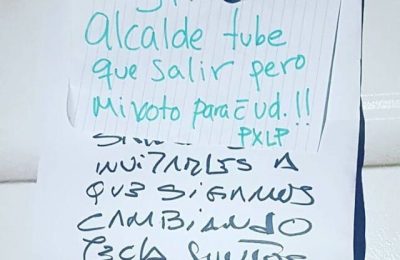 Alcalde tube
que salir pero
Mi voto para E ud.!!
PXLP
INVITARLES A
QUE SIGAMOS
CAMBIANDO